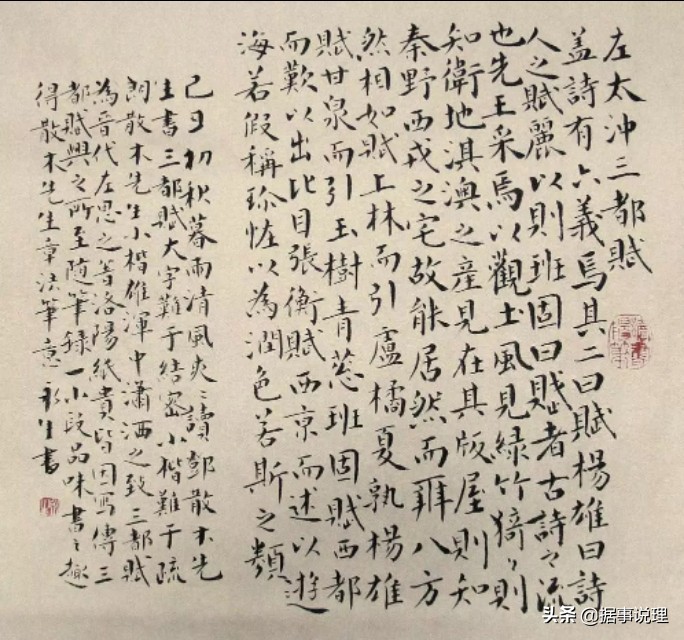 左太沖三都賦
盖詩有六義焉其二曰賦楊雄曰詩
人之賦麗以則班固曰賦者古詩之流
也先王采焉以觀土風見緑竹猗〻則
知衛地淇澳之産見在其版屋則知
秦野西戎之宅故能居然而辨八方
然相如賦上林而引盧橘夏孰楊雄
賦甘泉而引玉樹青葱班固賦西都
而歎以出比目張衡賦西京而述以遊
海若假稱珍怪以為潤色若斯之類
己丑初秋暮雨清風爽〻讀鄧散木先
生書三都賦大字難于結密小楷難于疏
朗散木先生小楷雄渾中瀟洒之致三都賦
為晉代左思之著洛陽紙貴皆因寫傳三
都賦興之所至随筆録一小段品味書之趣
得散木先生章法筆意永生書
头条 @据事说理